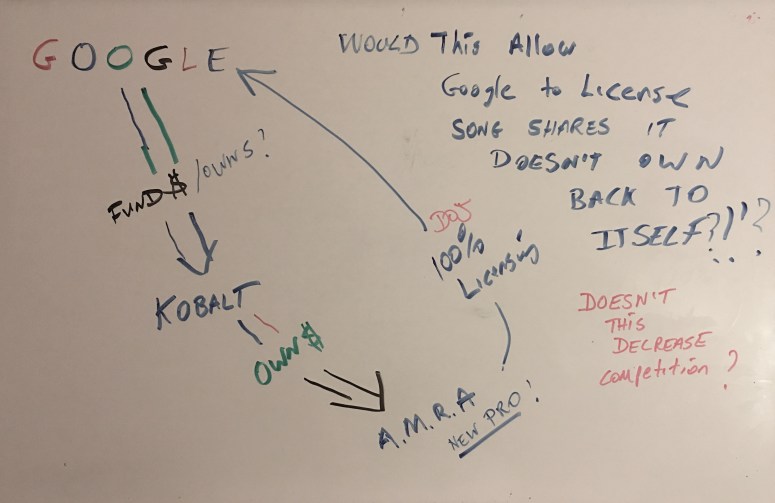 GOOGLE
FUND $ /OWNS?
KOBALT
OWN $
A.M.R.A
NEW PRO!
DOJ
100%
Licensing
WOULD This Allow
Google to License
SONG SHARES IT
DOESN'T OWN
BACK TO
ITSELF?!'?
DOESN'T
THIS
DECREASE
competition?